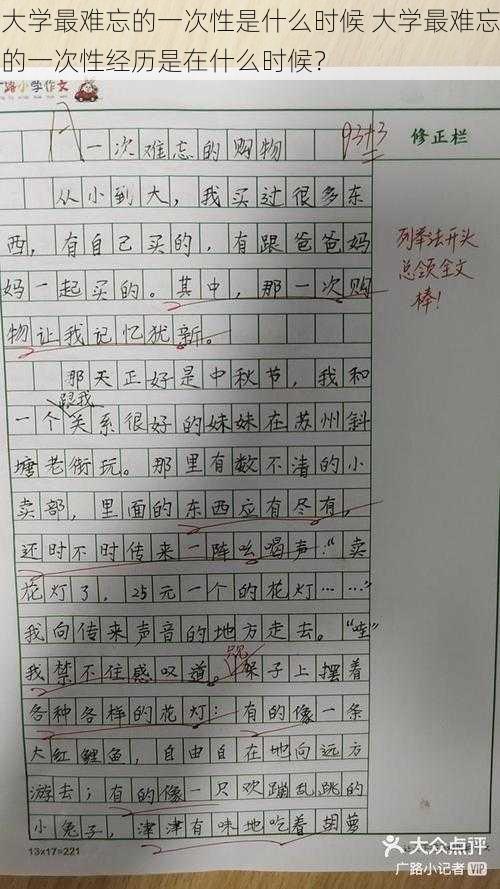 大学最难忘的一次性是什么时候 大学最难忘
的一次性经历是在什么时候？
广路小学作文
A
一次难忘的购物
93+3
修正栏
从小到大，我买过很多东
西，有自己买的，有跟爸爸妈
妈一起买的。其中，那一次购
物让我记忆犹新。
列举法开头
总领全文
棒！
那天正好是中秋节，我和
跟我
一个关系很好的妹妹在苏州斜
塘老街玩。那里有数不清的小
卖部，里面的东西应有尽有，
还时不时传来一阵吆喝声：“卖
花灯了，25元一个的花灯……”
我向传来声音的地方走去。“哇”
我禁不住感叹道。架子上摆着
各种各样的花灯：有的像一条
大红鲤鱼，自由自在地向远方
游去；有的像一只欢蹦乱跳的
小兔子，津津有味地吃着胡萝
13×17=221
大众点评
广路小记者 VIP